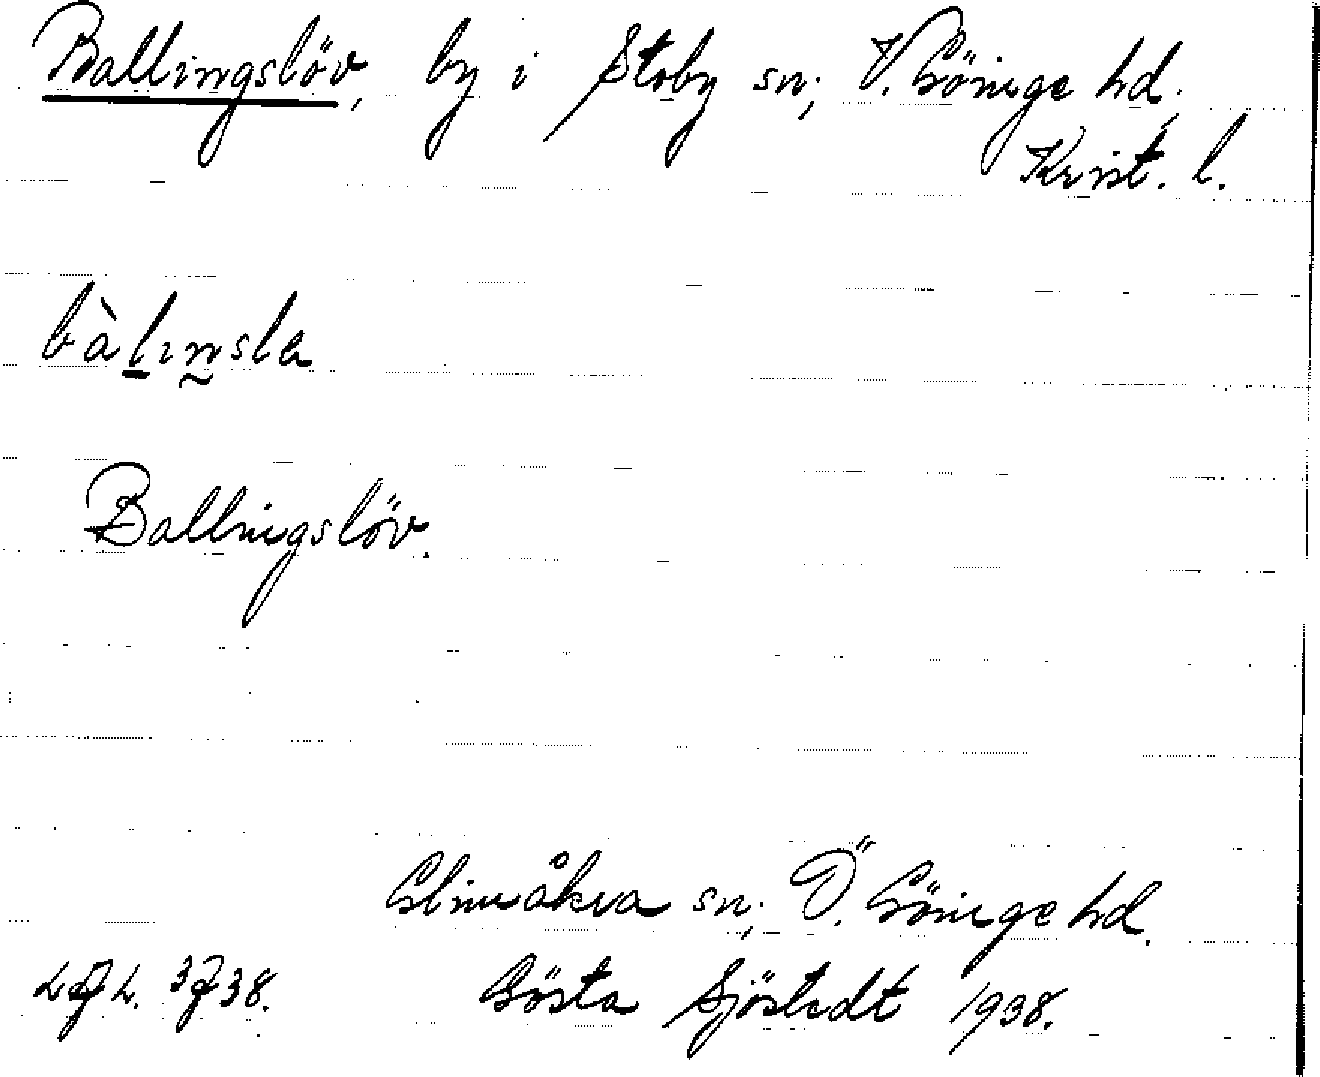 Ballingslöv, by i Stoby sn, V. Göinge hd.
Krist. l.
bàlinsla
Ballingslöv.
Glimåkra sn, Ö. Göinge hd.
38. Gösta Sjöstedt 1938.